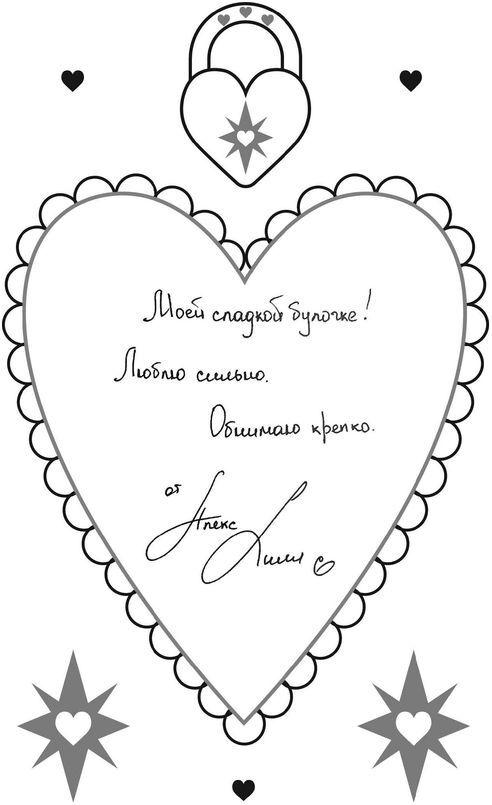 Моей сладкой булочке!
Люблю сильно.
Обнимаю крепко.
от Алекс Хилл